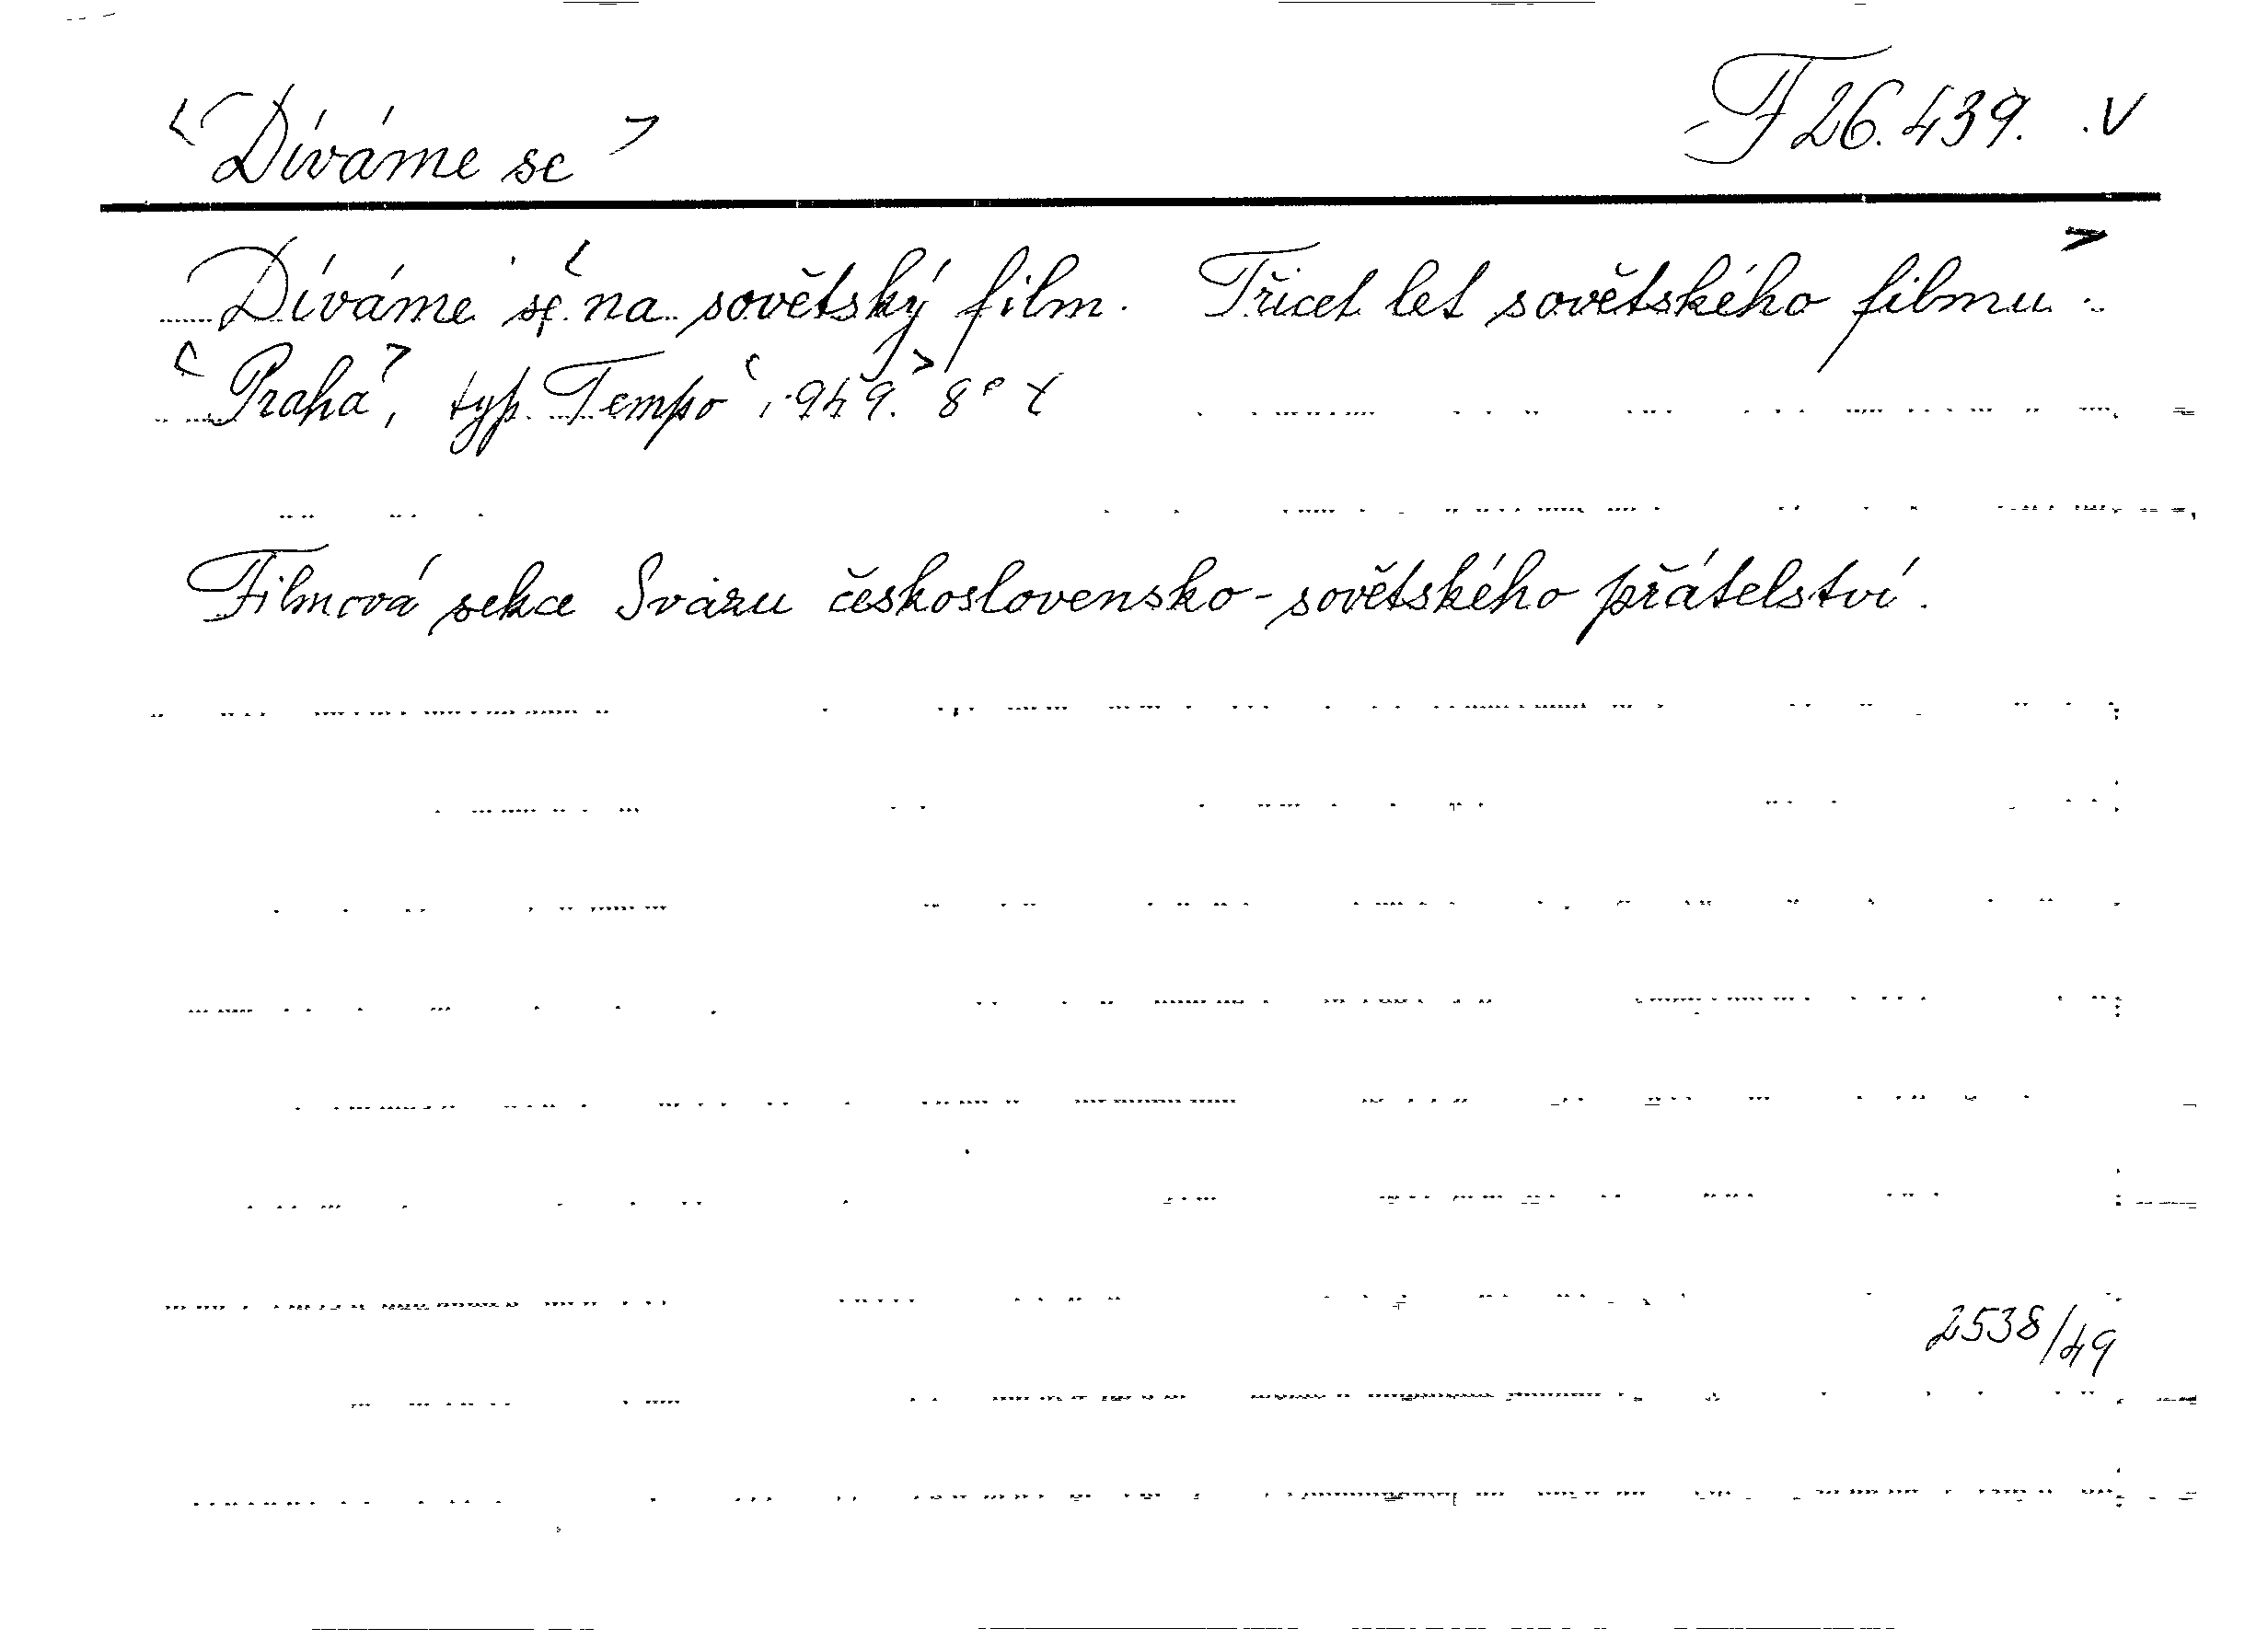 <Díváme se> F 26.439. V
Díváme se <na sovětský film. Třicet let sovětského filmu.>
<Praha>, typ. Tempo <1949.> 8° 
Filmová sekce Svazu československo-sovětského přátelství.
2538/49